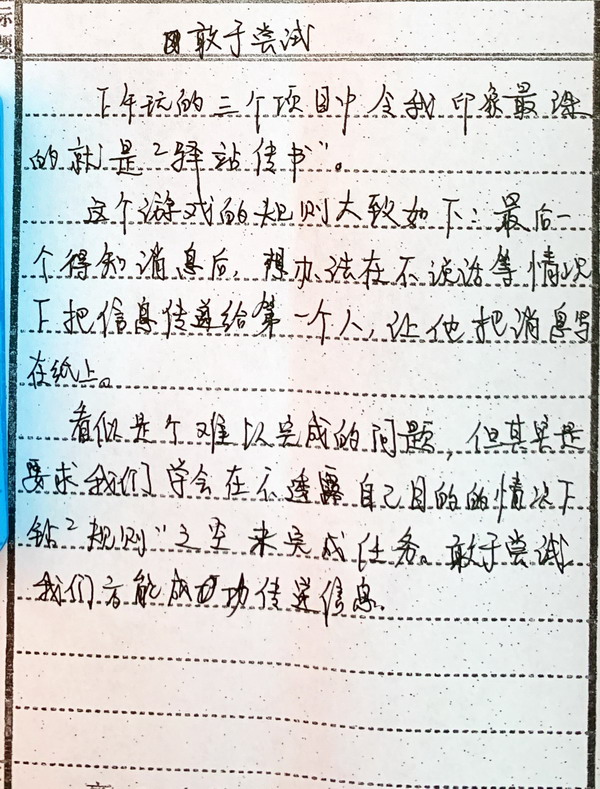 标题
敢于尝试
下午玩的三个项目中令我印象最深
的就是“驿站传书”。
这个游戏的规则大致如下：最后一
个得知消息后，想办法在不说话等情况
下把信息传递给第一个人，让他把消息写
在纸上。
看似是个难以完成的问题，但其实是
要求我们学会在不透露自己目的的情况下
钻“规则”之空来完成任务。敢于尝试
我们方能成功传递信息。